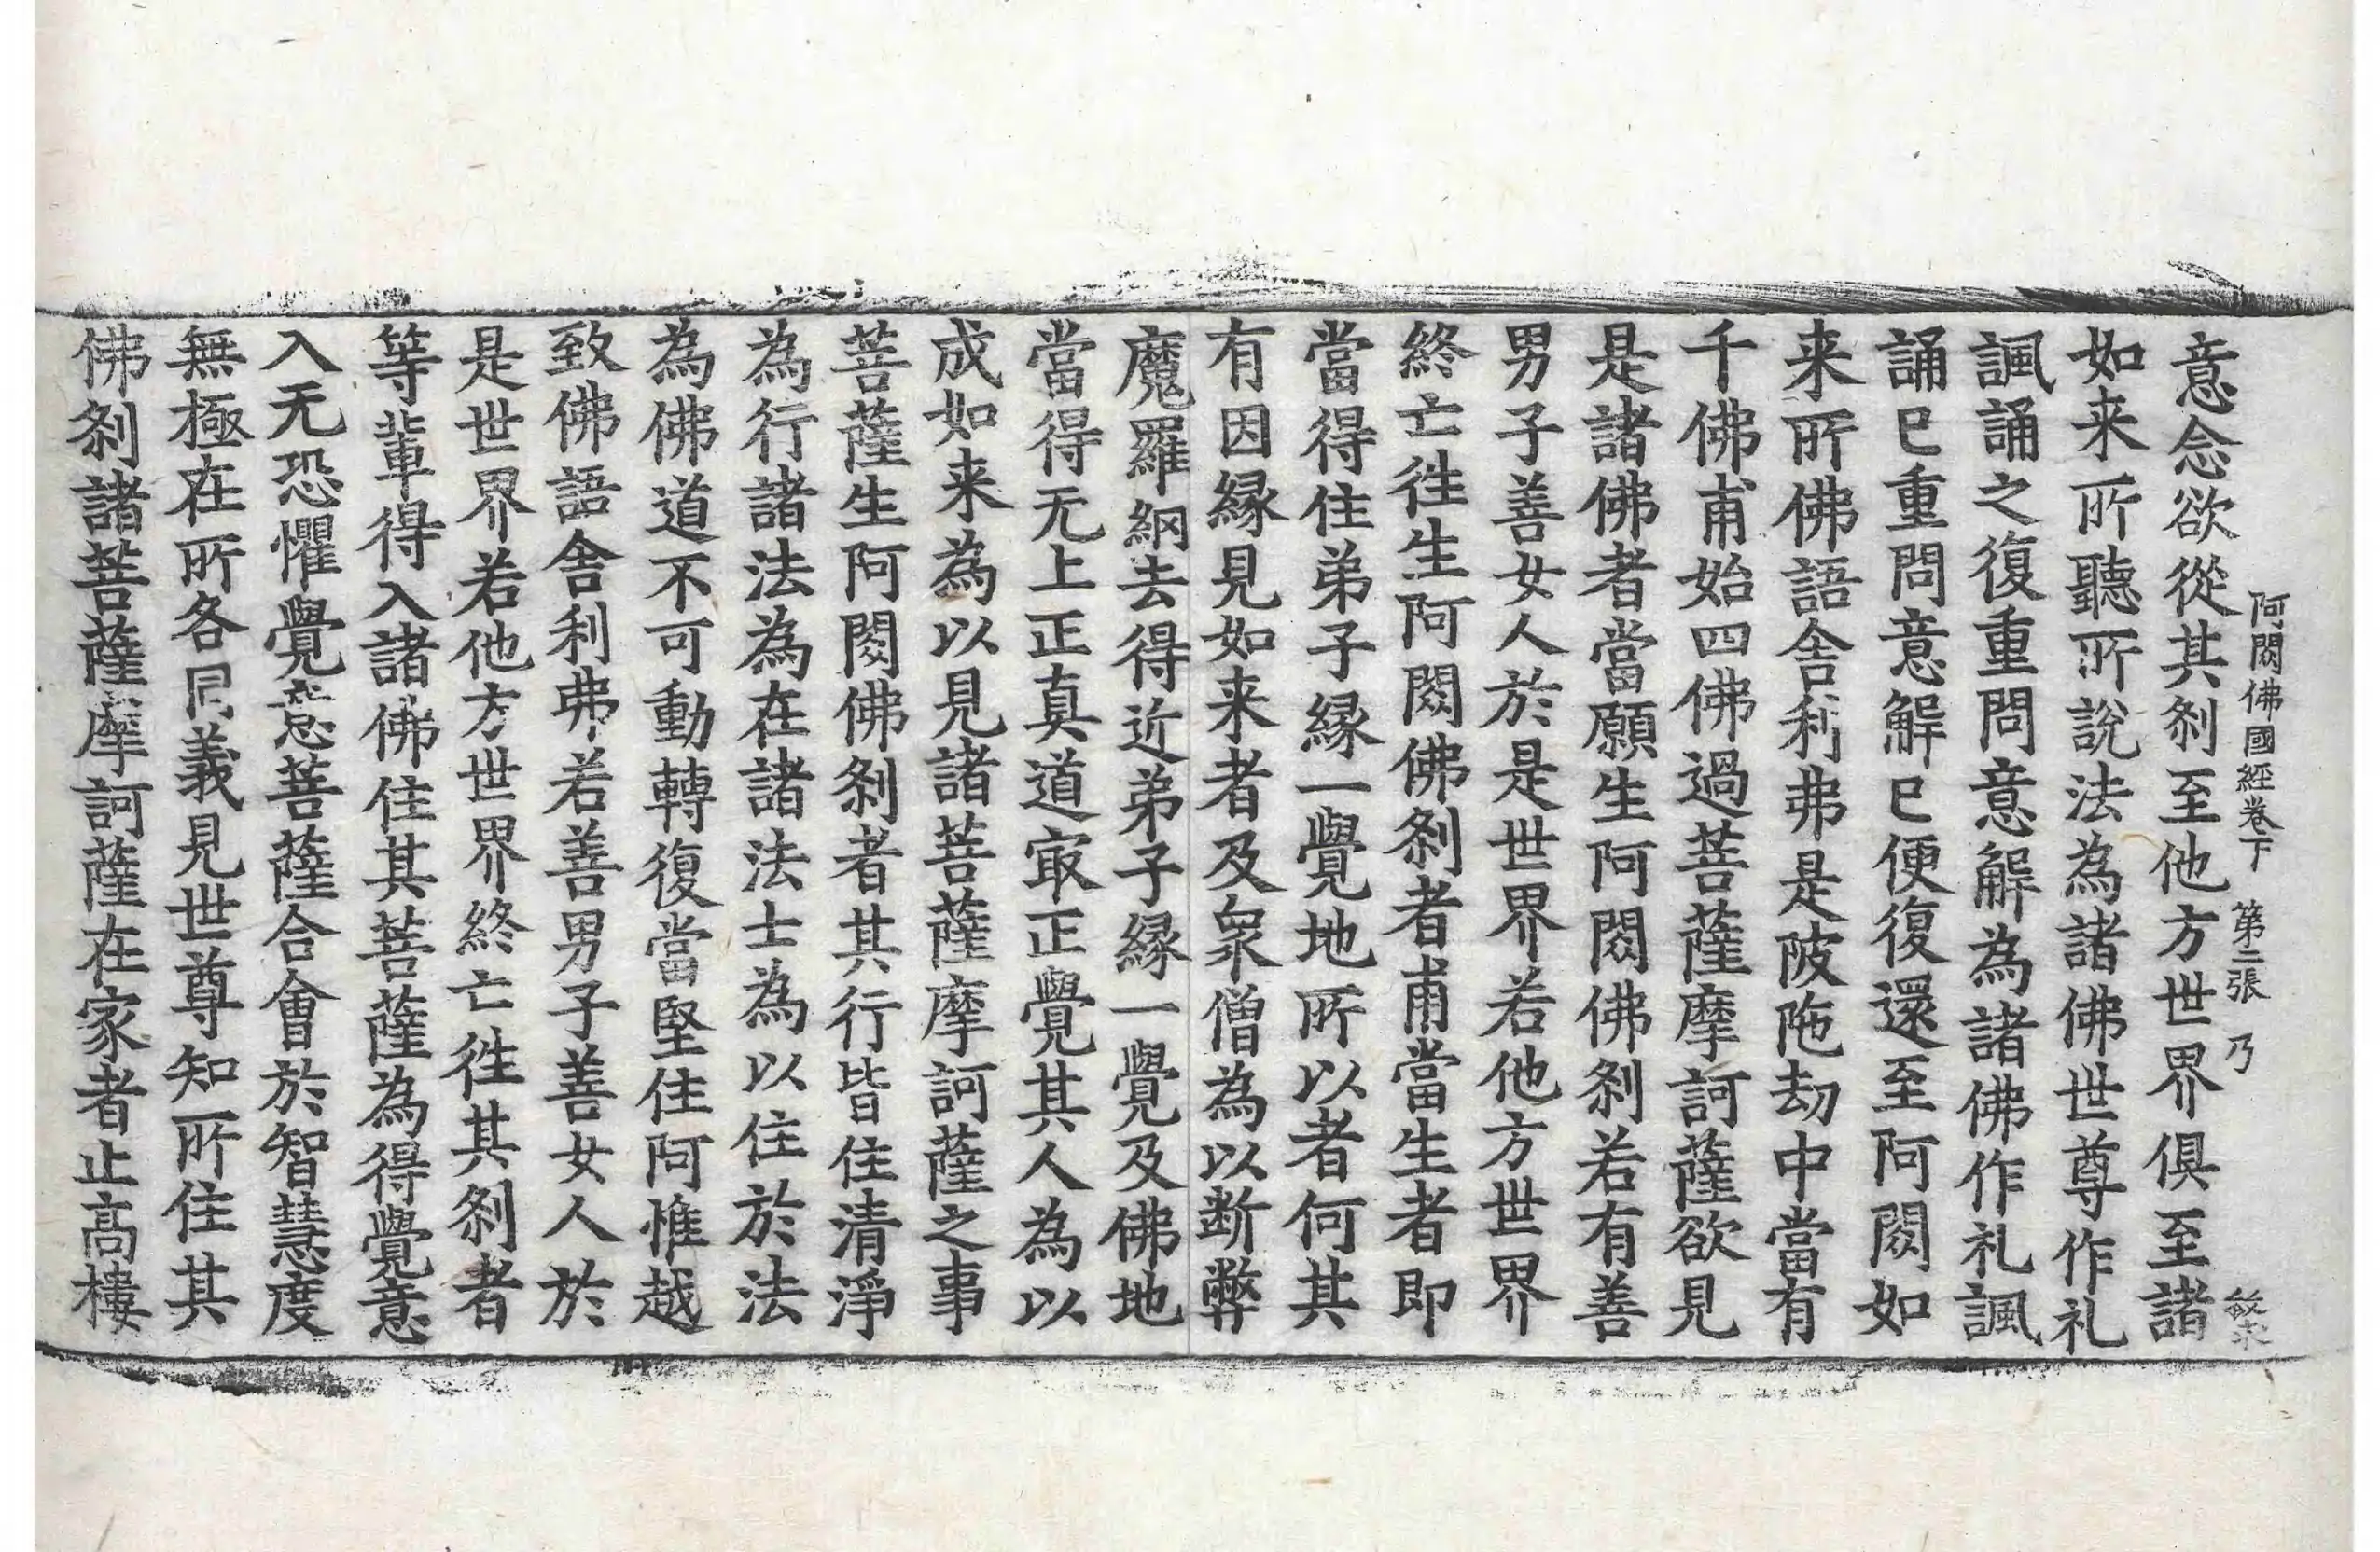 阿閦佛國經卷下 第二張 乃
意念欲從其刹至他方世界俱至諸
如来所聽所說法為諸佛世尊作礼
諷誦之復重問意解為諸佛作礼諷
誦已重問意解已便復還至阿閦如
来所佛語舎利弗是陂陁劫中當有
千佛甫始四佛過菩薩摩訶薩欲見
是諸佛者當願生阿閦佛刹若有善
男子善女人於是世界若他方世界
終亡徃生阿閦佛刹者甫當生者即
當得住弟子縁一覺地所以者何其
有因縁見如来者及衆僧為以断弊
魔羅網去得近弟子縁一覺及佛地
當得无上正真道㝡正覺其人為以
成如来為以見諸菩薩摩訶薩之事
菩薩生阿閦佛刹者其行皆住清淨
為行諸法為在諸法士為以住於法
為佛道不可動轉復當堅住阿惟越
致佛語舎利弗若善男子善女人於
是世界若他方世界終亡徃其刹者
等輩得入諸佛住其菩薩為得覺意
入无恐懼覺意菩薩合會於智慧度
無極在所各同義見世尊知所住其
佛刹諸菩薩摩訶薩在家者止高樓